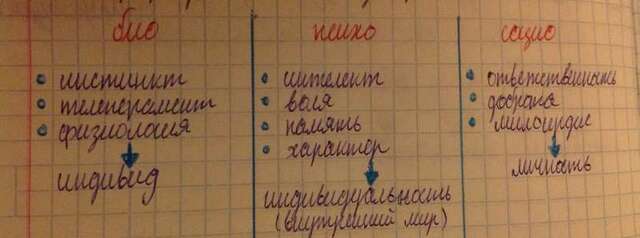 био
инстинкт
темперамент
физиология
индивид
психо
интелект
воля
память
характер
индивидуальность
(внутренний мир)
социо
ответственность
доброта
милосердие
личность